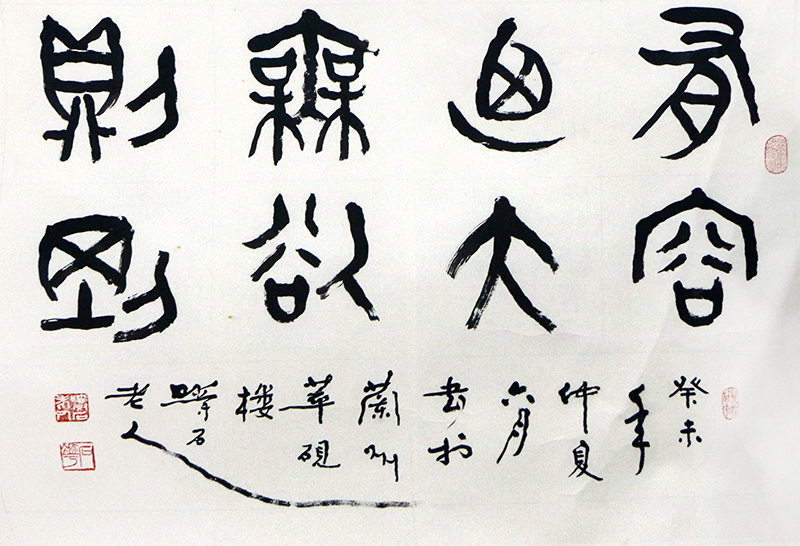 有容
迺大
無欲
則剛
癸未
年
仲夏
六月
书扵
蘭州
萃硯
樓
石
老人